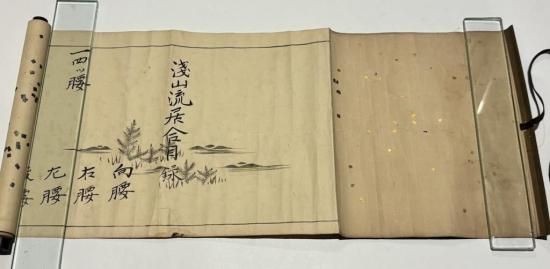 淺山流居合目録
一四ッ腰
向腰
右腰
左腰